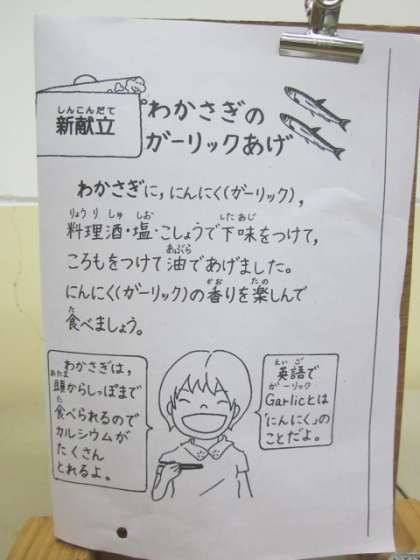 しんこんだて
新献立
わかさぎの
ガーリックあげ
わかさぎに,にんにく(ガーリック),
りょうりしゅ しお したあじ
料理酒・塩・こしょうで下味をつけて,
あぶら
ころもをつけて油であげました。
かお たの
にんにく(ガーリック)の香りを楽しんで
た
食べましょう。
わかさぎは,
あたま
頭からしっぽまで
た
食べられるので
カルシウムが
たくさん
とれるよ。
えいご
英語で
ガーリック
Garlicとは
「にんにく」の
ことだよ。